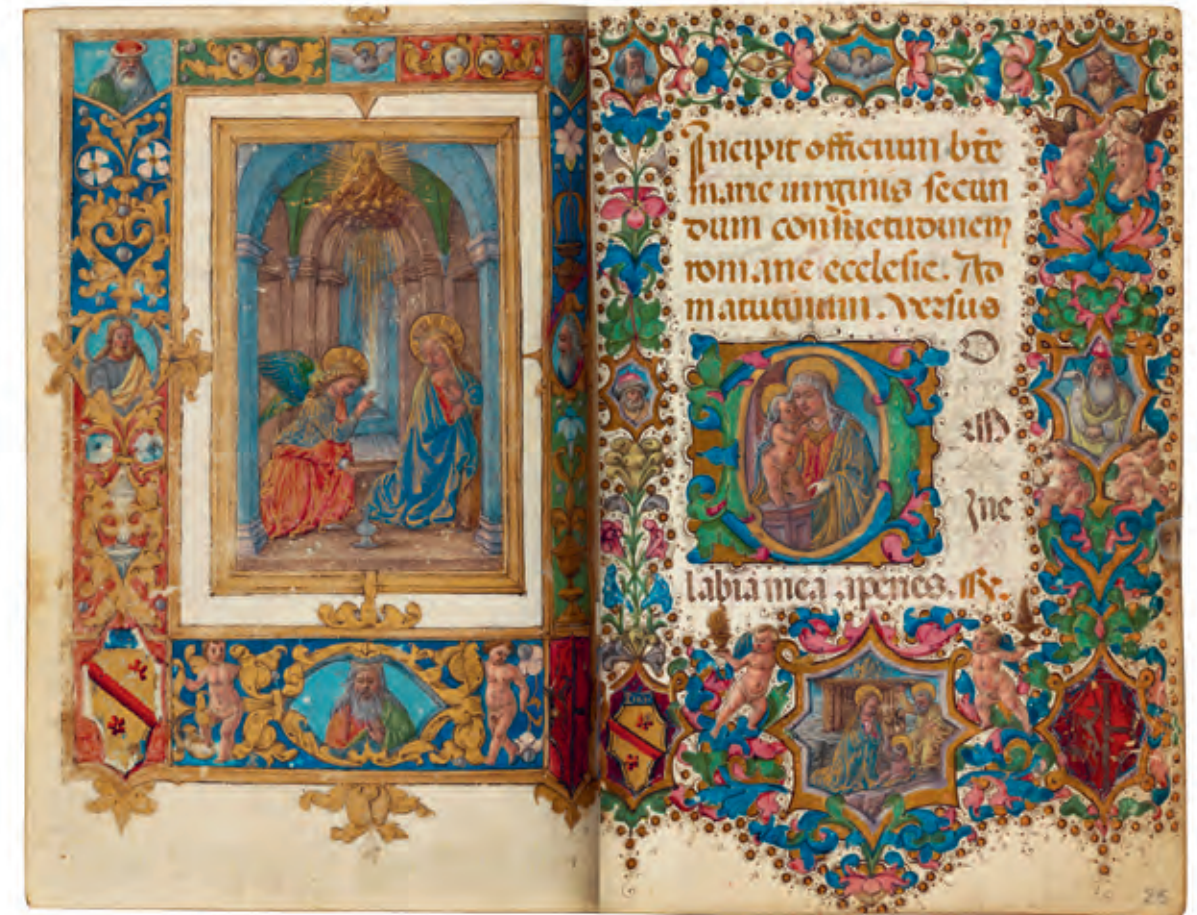 Incipit officium bte
marie uirginis secun
dum consuetudinem
romane ecclesie. Ad
matutinum. Versus
D
omi
ne
labia mea aperies. R.
25